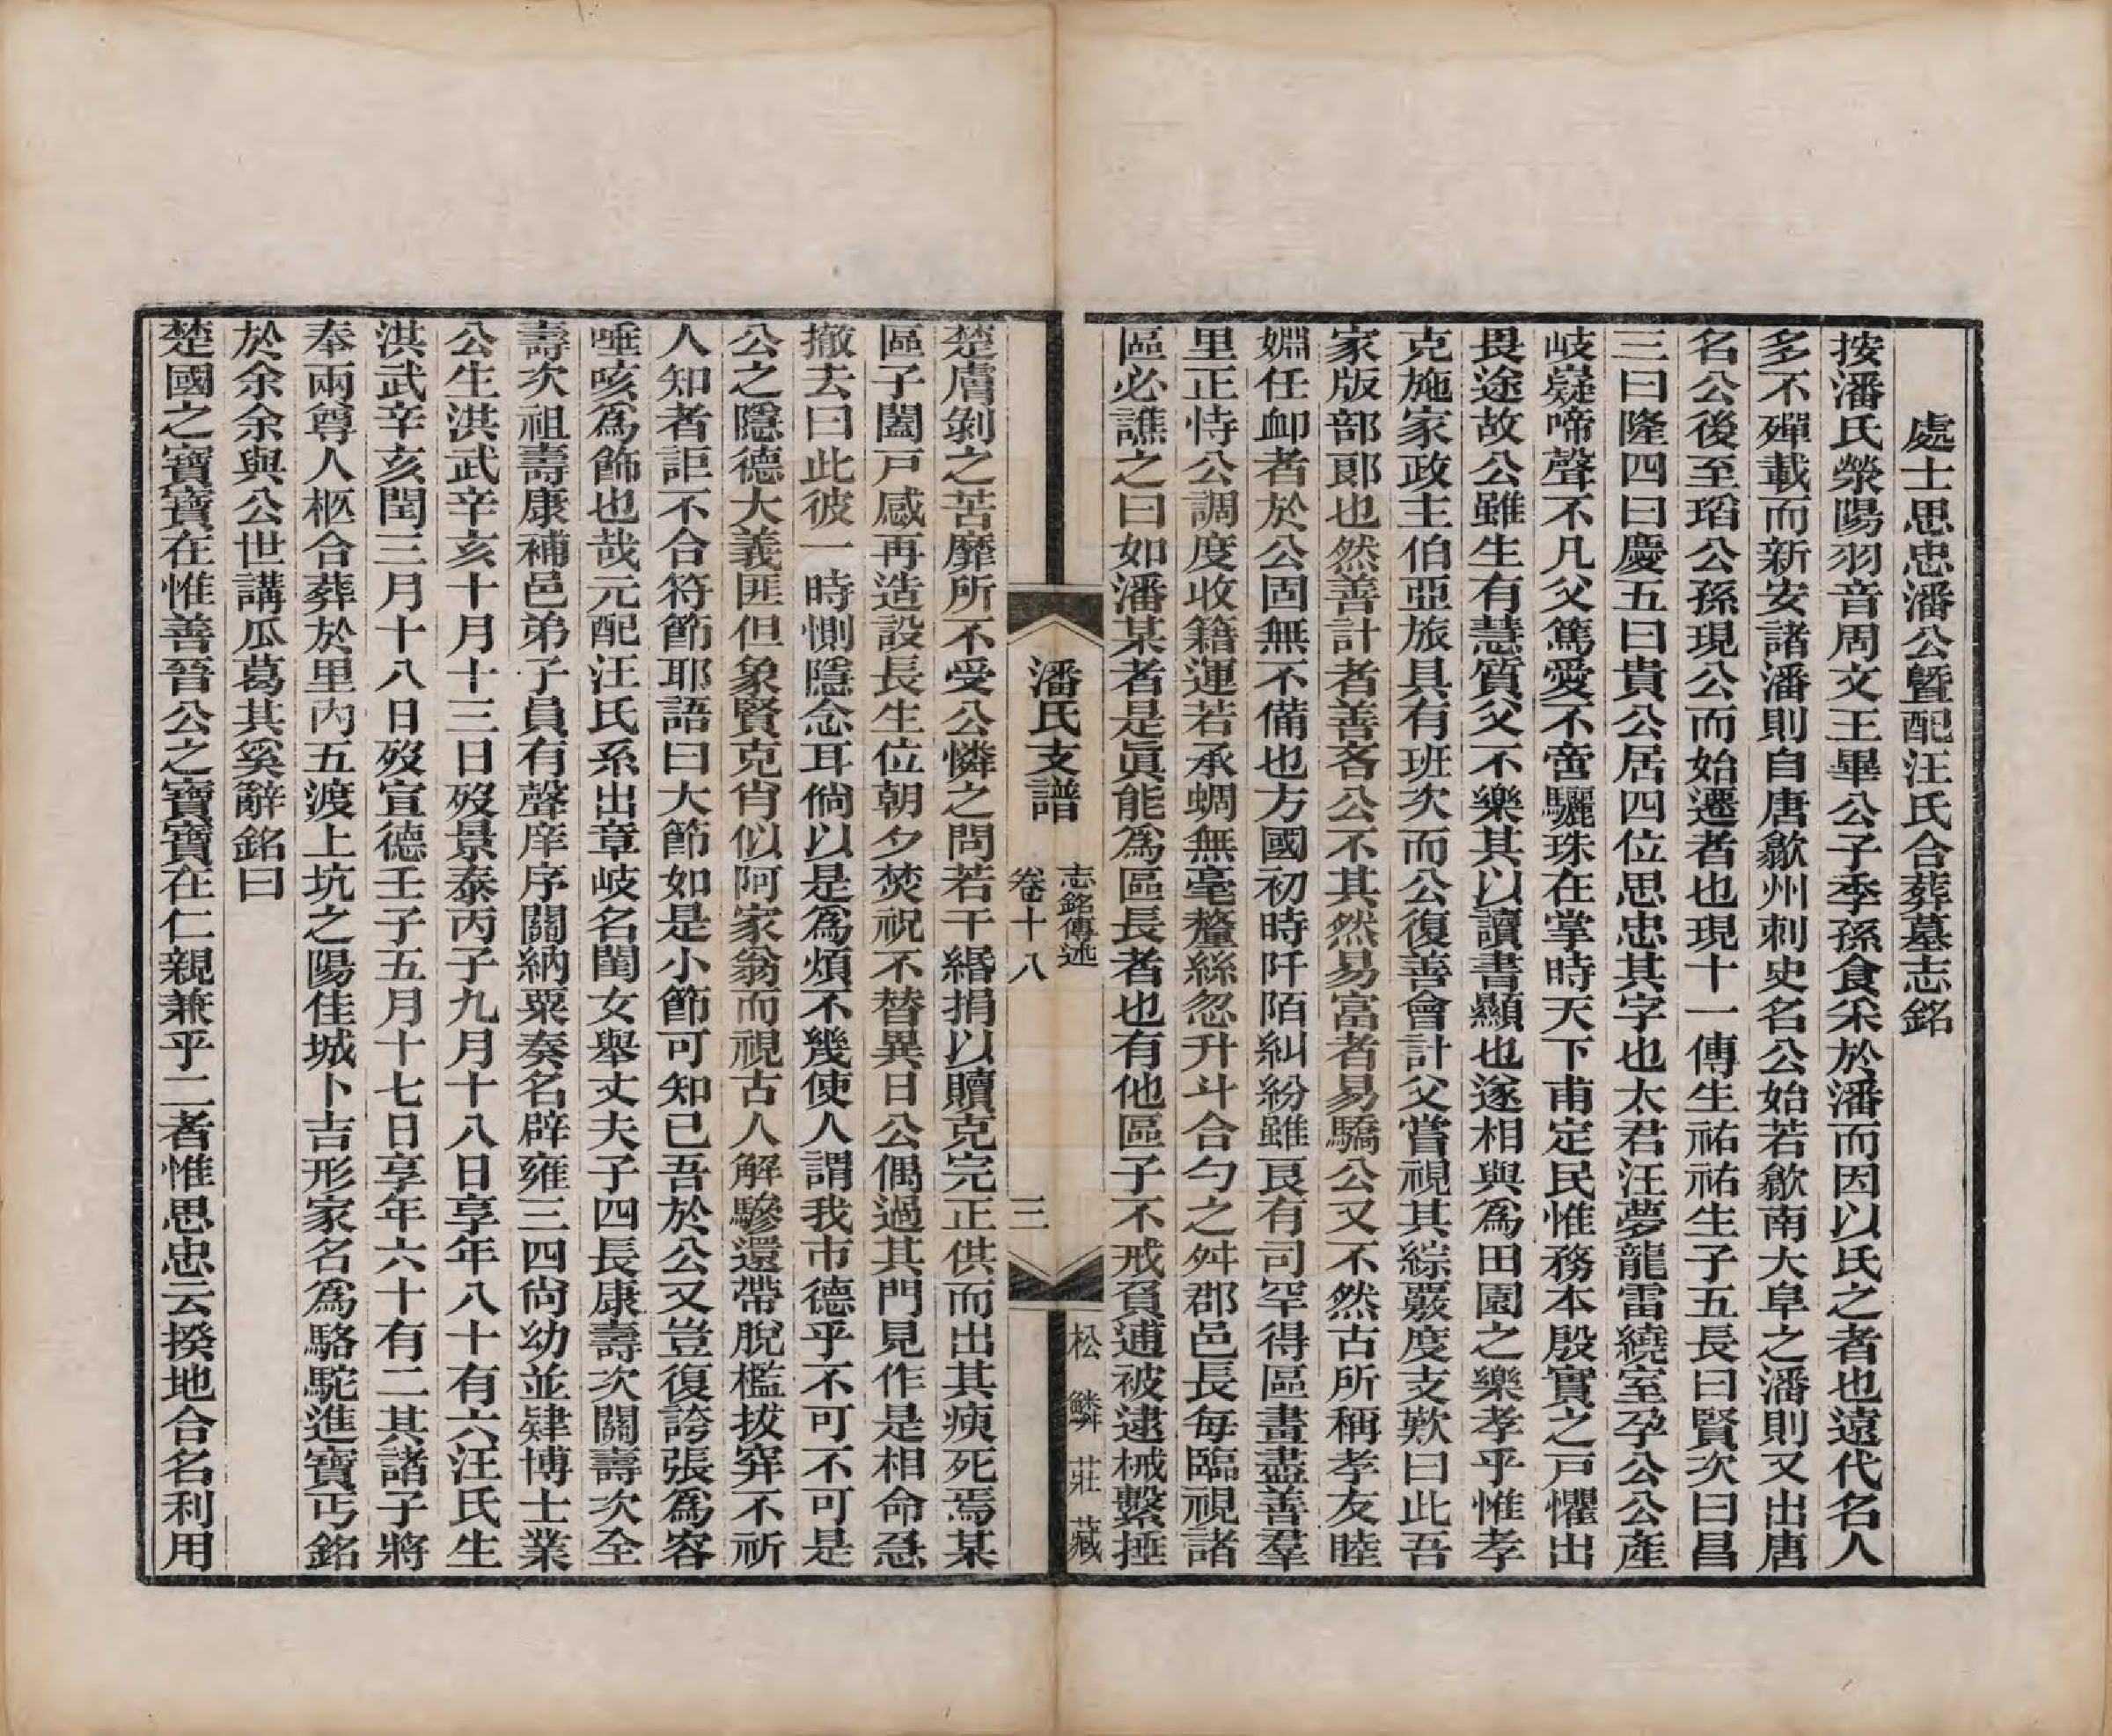 處士思忠潘公暨配汪氏合葬墓志銘
按潘氏滎陽羽音周文王畢公子季孫食采於潘而因以氏之者也遠代名人
多不殫載而新安諸潘則自唐歙州刺史名公始若歙南大阜之潘則又出唐
名公後至瑫公孫現公而始遷者也現十一傳生祐祐生子五長曰賢次曰昌
三曰隆四曰慶五曰貴公居四位思忠其字也太君汪夢龍雷繞室孕公公產
岐嶷啼聲不凡父篤愛不啻驪珠在掌時天下甫定民惟務本殷實之戸懼出
畏途故公雖生有慧質父不樂其以讀書顯也遂相與爲田園之樂孝乎惟孝
克施家政主伯亞旅具有班次而公復善會計父嘗視其綜覈度支歎曰此吾
家版部郎也然善計者善吝公不其然易富者易驕公又不然古所稱孝友睦
婣任卹者於公固無不備也方國初時阡陌糾紛雖良有司罕得區畫盡善羣
里正恃公調度收籍運若承蜩無毫釐絲忽升斗合勺之舛郡邑長每臨視諸
區必譙之曰如潘某者是眞能爲區長者也有他區子不戒負逋被逮械繫捶
潘氏支譜
志銘傳述
卷十八
三
松鱗莊藏
楚膚剝之苦靡所不受公憐之問若干緡捐以贖克完正供而出其瘐死焉某
區子闔戸感再造設長生位朝夕焚祝不替異日公偶過其門見作是相命急
撤去曰此彼一時惻隱念耳倘以是爲煩不幾使人謂我市德乎不可不可是
公之隱德大義匪但象賢克肖似阿家翁而視古人解驂還帶脫檻拔穽不祈
人知者詎不合符節耶語曰大節如是小節可知已吾於公又豈復誇張爲容
唾咳爲飾也哉元配汪氏系出章岐名閨女舉丈夫子四長康壽次關壽次全
壽次祖壽康補邑弟子員有聲庠序關納粟奏名辟雍三四尙幼並肄博士業
公生洪武辛亥十月十三日歿景泰丙子九月十八日享年八十有六汪氏生
洪武辛亥閏三月十八日歿宣德壬子五月十七日享年六十有二其諸子將
奉兩尊人柩合葬於里内五渡上坑之陽佳城卜吉形家名爲駱駝進寶丐銘
於余余與公世講瓜葛其奚辭銘曰
楚國之寶寶在惟善晉公之寶寶在仁親兼乎二者惟思忠云揆地合名利用